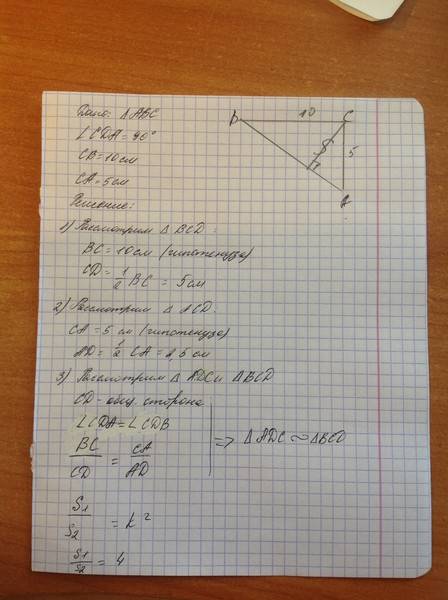 Дано: △ABC
∠CDA = 90°
CB = 10 см
CA = 5 см
Решение:
B 10 C
5
5
A
1) Рассмотрим △ BCD:
BC = 10 см (гипотенуза)
CD = 1/2 BC = 5 см
2) Рассмотрим △ ACD:
CA = 5 см (гипотенуза)
AD = 1/2 CA = 2,5 см
3) Рассмотрим △ ADC и △BCD
CD - общ. сторона
∠CDA = ∠CDB
BC/CD = CA/AD
=> △ADC ~ △BCD
S1/S2 = k²
S1/S2 = 4